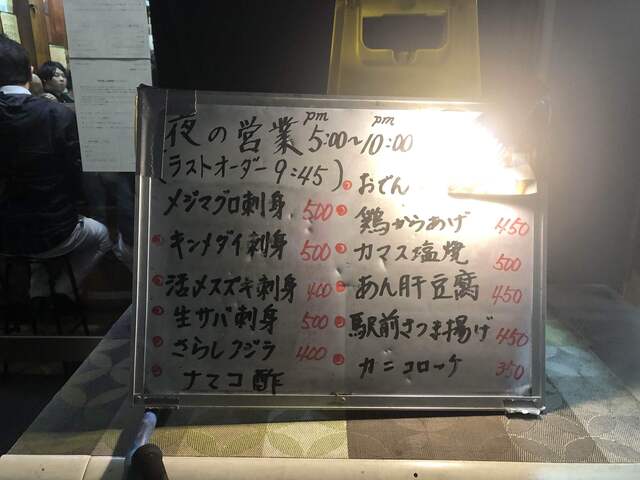 夜の営業 pm 5:00〜pm 10:00
(ラストオーダー 9:45)
メジマグロ刺身 500
キンメダイ刺身 500
活〆スズキ刺身 400
生サバ刺身 500
さらしクジラ 400
ナマコ酢
おでん
鶏からあげ 450
カマス塩焼 500
あん肝豆腐 450
駅前さつま揚げ 450
カニコロッケ 350